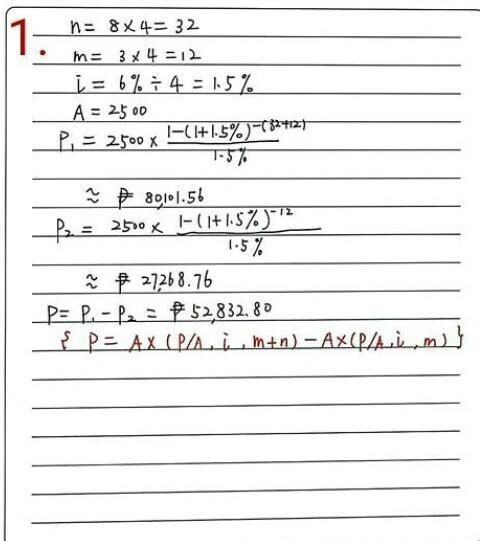 1. n = 8 × 4 = 32
m = 3 × 4 = 12
i = 6% ÷ 4 = 1.5%
A = 2500
P₁ = 2500 × (1-(1+1.5%)^-(32+12))/(1.5%)
≈ ₱ 80,101.56
P₂ = 2500 × (1-(1+1.5%)^-12)/(1.5%)
≈ ₱ 27,268.76
P = P₁ - P₂ = ₱ 52,832.80
{ P = A × (P/A, i, m+n) - A × (P/A, i, m) }